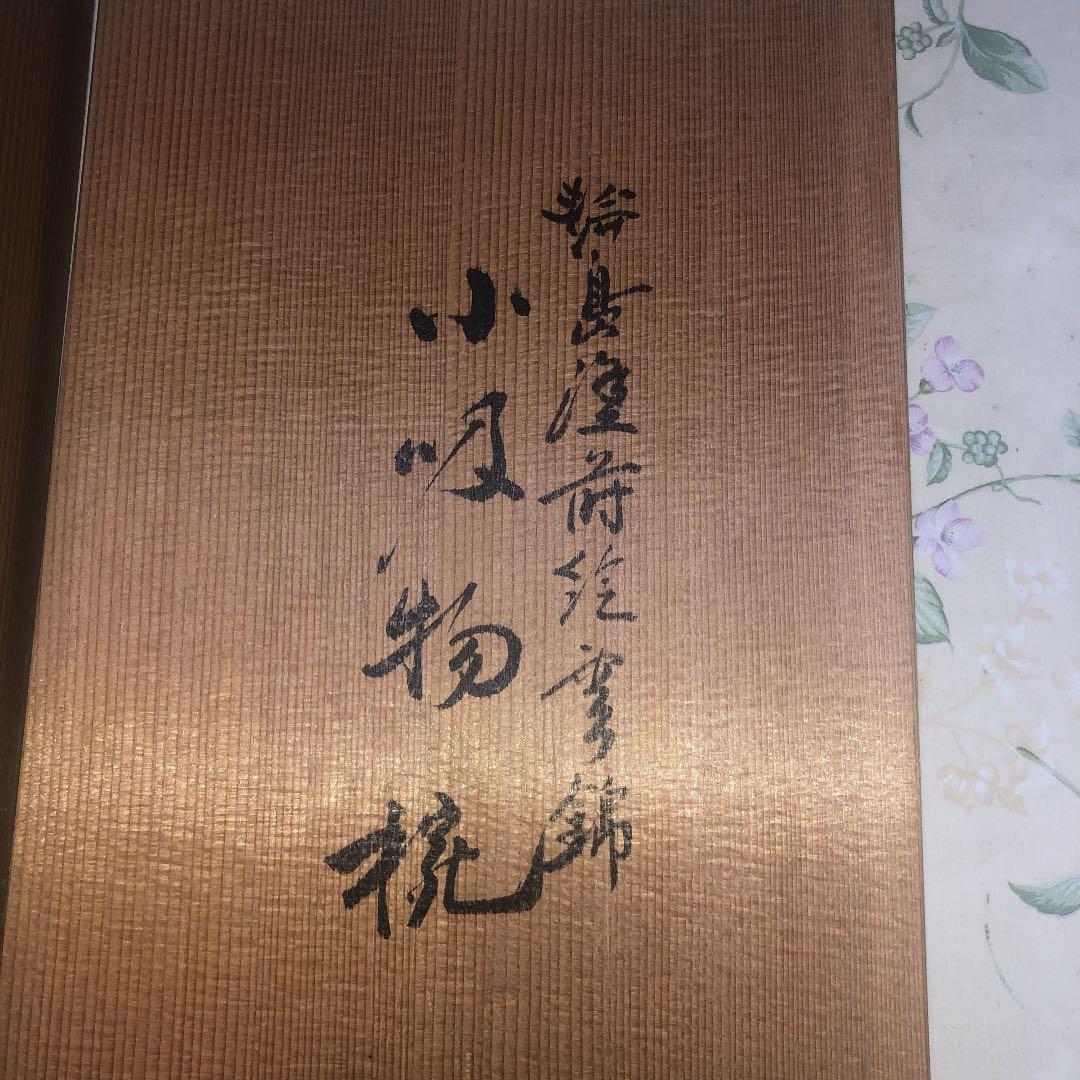 輪島塗蒔絵雲錦
小吸物椀